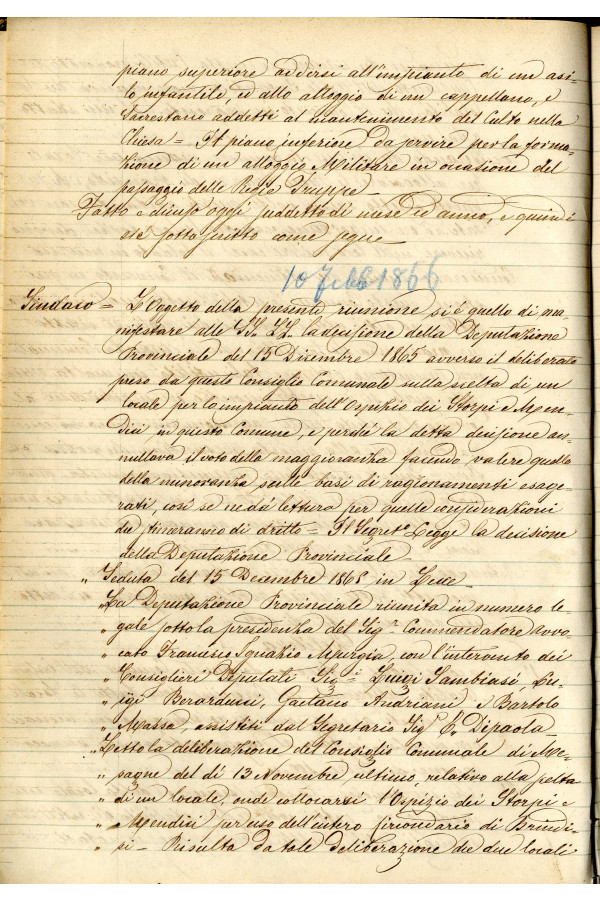 piano superiore addirsi all'impianto di un asi-
lo infantile, ed allo alloggio di un cappellano, e
Sacrestano addetti al mantenimento del Culto nella
Chiesa = Il piano inferiore da servire per la forma-
zione di un alloggio Militare in occasione del
passaggio delle Regie Truppe
Fatto e chiuso oggi suddetto dì mese ed anno, e quindi
sta sottoscritto come segue
10 Feb 1866
Sindaco = L'Oggetto della presente riunione si è quello di ma-
nifestare alle SS. LL. la decisione della Deputazione
Provinciale del 15 Dicembre 1865 avverso il deliberato
preso da questo Consiglio Comunale sulla scelta di un
locale per lo impianto dell'Ospizio dei Storpi e Men-
dici in questo Comune, e perché la detta decisione an-
nullava il voto della maggioranza facendo valere quello
della minoranza sulle basi di ragionamenti esage-
rati, così se ne dà lettura per quelle considerazioni
che saranno di dritto = Il Segret.o Legge la decisione
della Deputazione Provinciale
" Seduta del 15 Decembre 1865 in Lecce
" La Deputazione Provinciale riunita in numero le-
" gale sotto la presidenza del Sig.r Commendatore Avvo-
" cato Francesco Ignazio Murgia, con l'intervento dei
" Consiglieri Deputati Sig.i Luigi Sambiasi, Lu-
" igi Berarducci, Gaetano Andriani, e Bartolo
" Massa, assistiti dal Segretario Sig.r Dipaola
" Letto la deliberazione del Consiglio Comunale di Me-
" sagne del dì 13 Novembre ultimo, relativo alla scelta
" di un locale, onde collocarsi l'Ospizio dei Storpi e
" Mendici per uso dell'intero Circondario di Brindi-
" si = Risulta da tale deliberazione che due locali